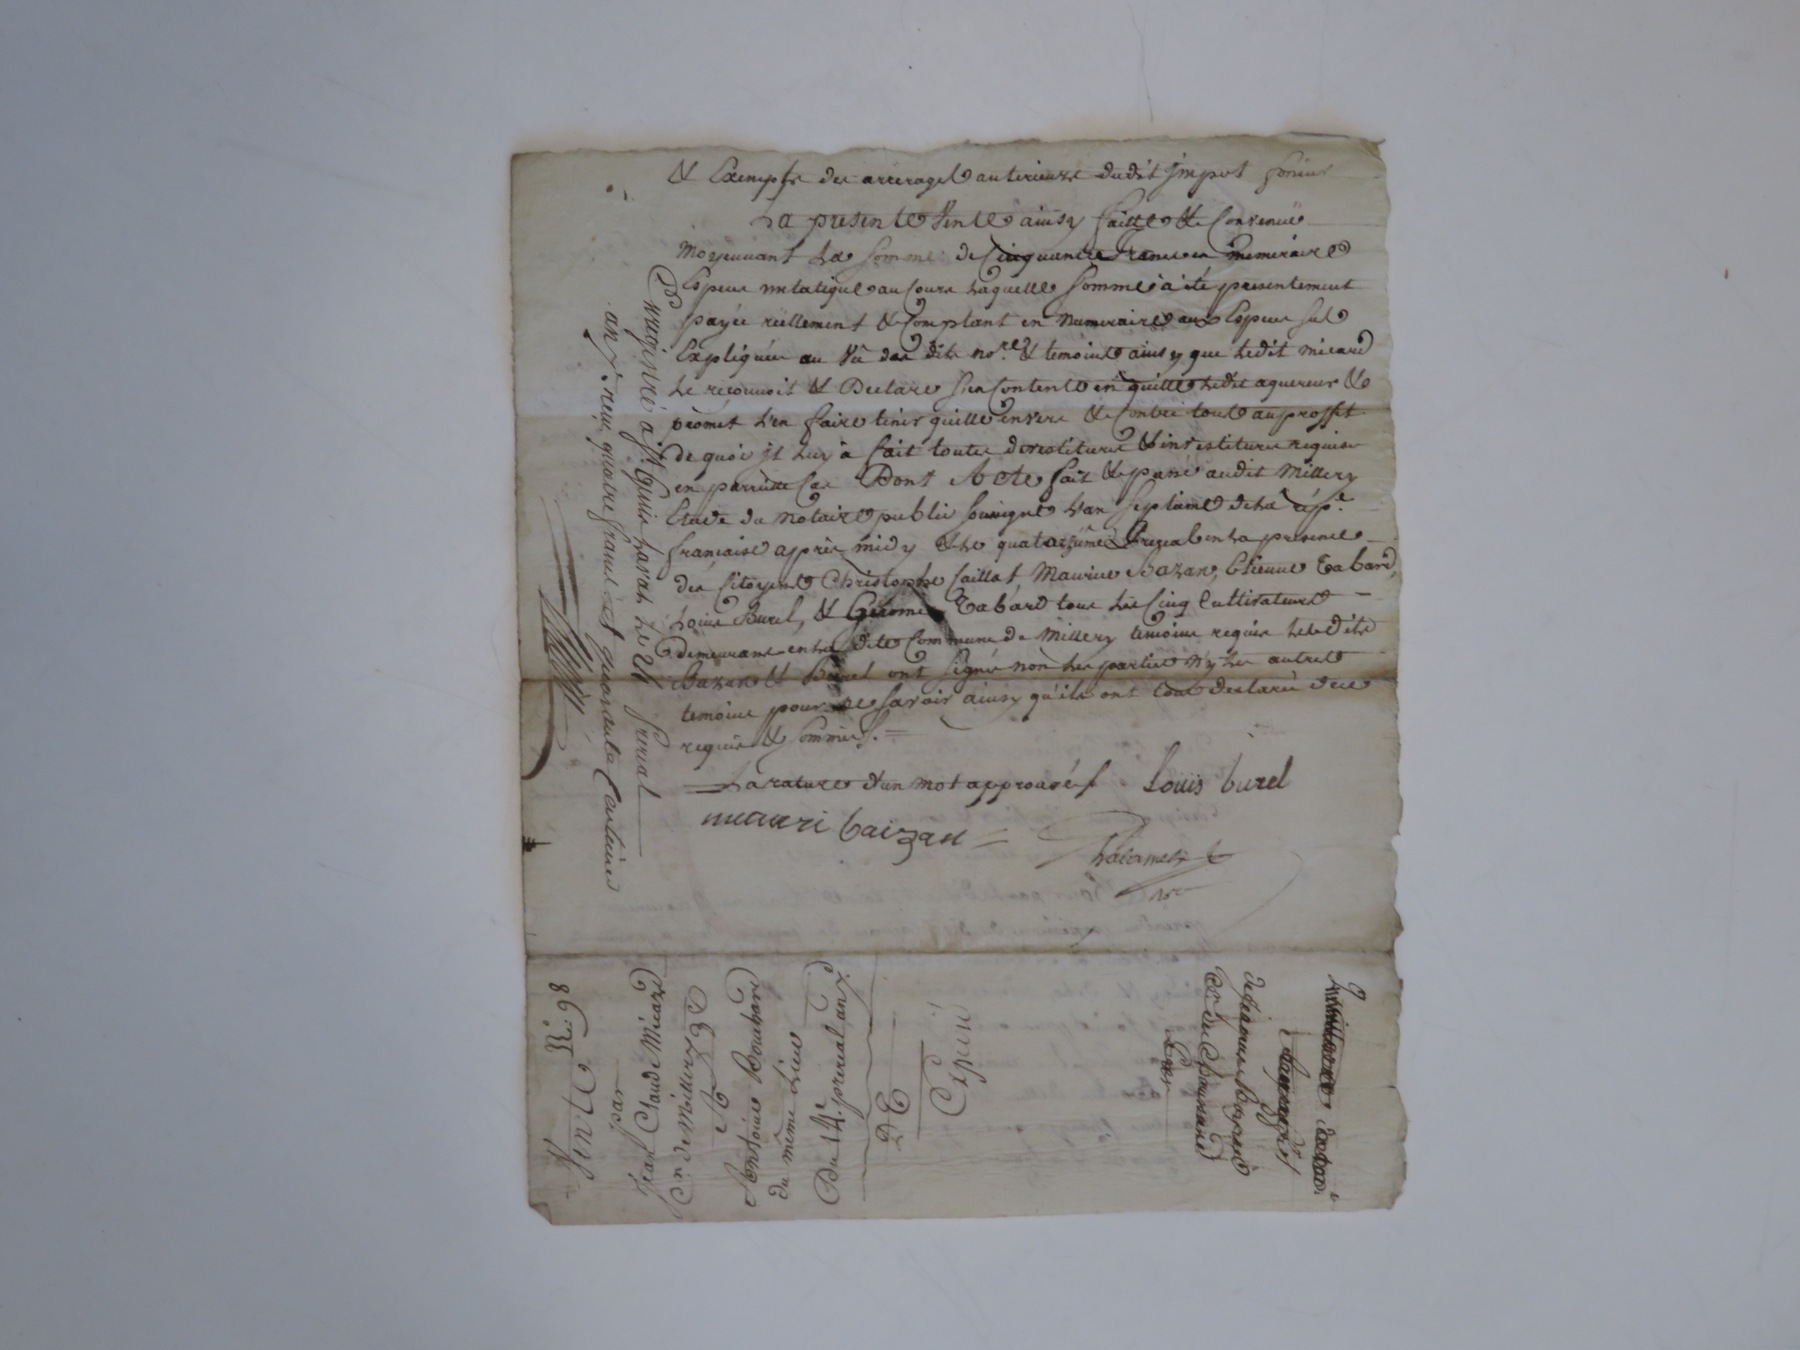 & Exempte des arrerages anterieurs dudit jmpot foncier
La presente Vente ainsy faitte & Convenuë
Moyennant La somme de Cinquante francs en numeraire
Espece metalique au Cours Laquelle somme à été presentement
payée réellement & Comptant en Numeraire aux Especes sus
Expliquées au Vû des dits no.re & temoins ainsy que Ledit micard
Le reconnoit & Declare s'en Contente en quitte Ledit aquereur &
promet L'en faire tenir quitte envers & Contre tous au proffit
de quoi jl Luy à fait toutes devestitures & investitures requises
en pareille Cas Dont Acte fait & passé audit Millery
Etude du Notaire public soussigné L'an septieme de La rép.e
française après midy & Le quatorzieme prerial en La presence
des Citoyens Christophe Caillat, Maurice Bazan, Etienne Tabard,
Louis Burel, & Gerome Tabard tous Les Cinq Cultivateurs
demeurans en La dite Commune de Millery temoins requis Lesdits
Bazan & Burel ont signé non Les parties n'y Les autres
temoins pour ne savoir ainsy qu'ils ont tous declaré de ce
requis & sommés.=
La rature d'un mot approuvée Louis burel
mauri baizan
no.re
Enregistré à st Genis Laval Le 21 prerial
an 7. reçu quatre francs et quarante Centimes
Vente
par
Jean Claude Micard
C.en de Millery
A
Antoine Bouchard
du même Lieu
Du 14.e prerial an 7
Expedié